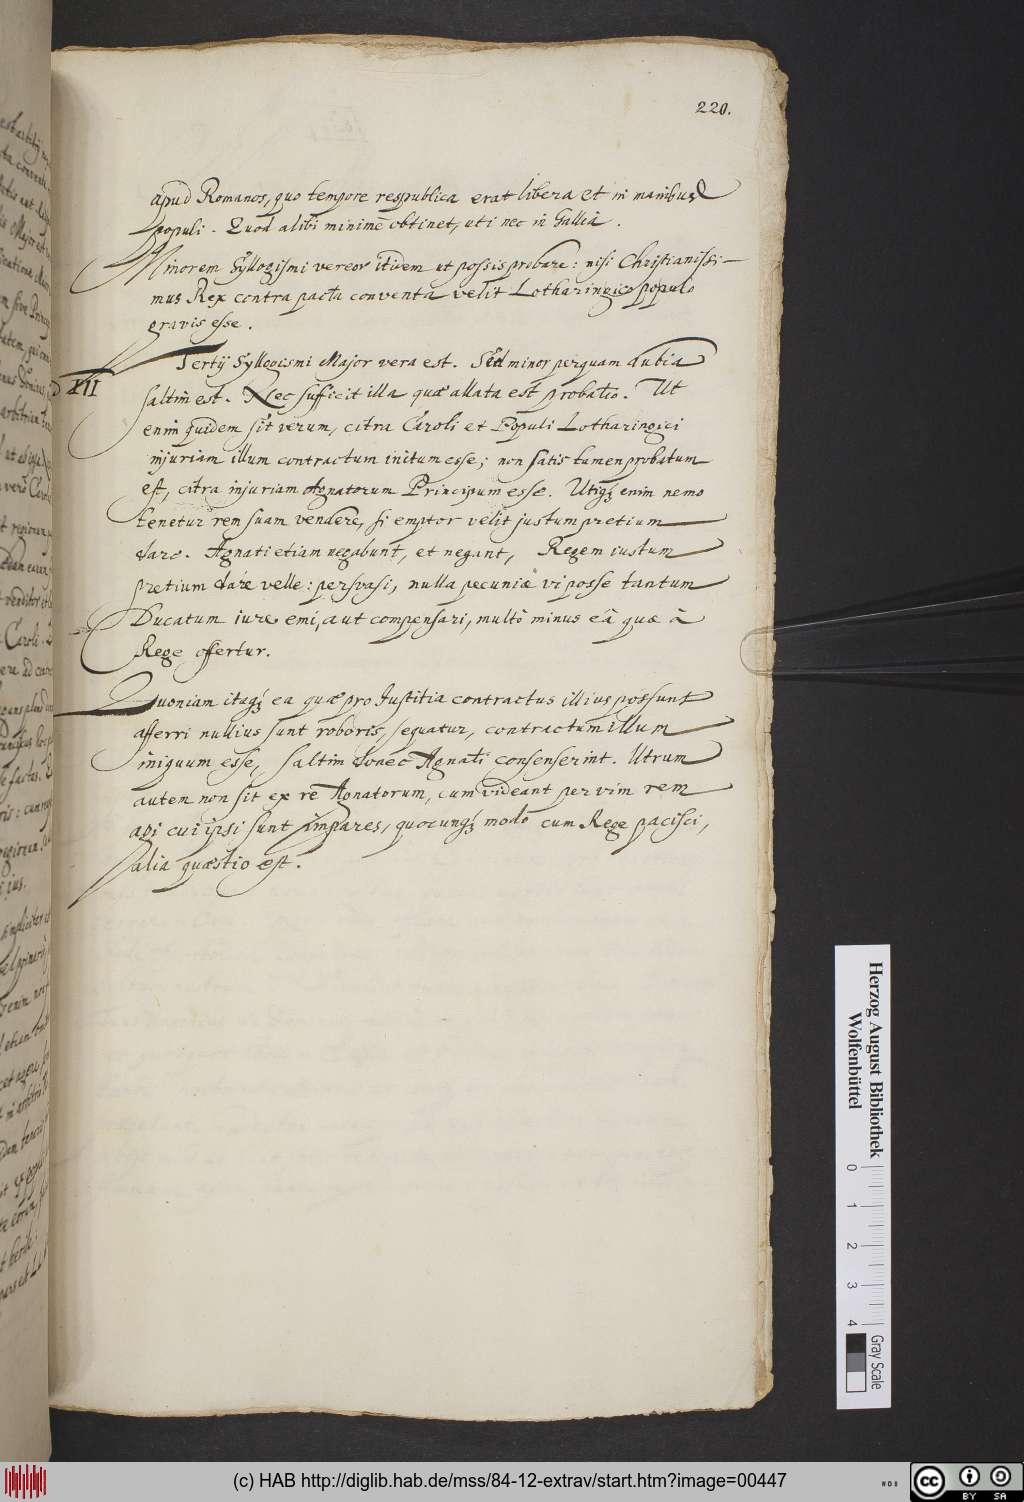 220.
apud Romanos, quo tempore respublica erat libera et in manibus
populi. Quod alibi minimè obtinet, uti nec in Gallia.
Minorem Syllogismi vereor itidem ut possis probare: nisi Christianissi-
mus Rex contra pacta conventa velit Lotharingico populo
gravis esse.
XII
Tertij Syllogismi Major vera est. Sed minor perquam dubia
saltim est. Nec sufficit illa quæ allata est probatio. Ut
enim quidem sit verum, citra Caroli et Populi Lotharingici
injuriam illum contractum initum esse; non satis tamen probatum
est, citra injuriam Agnatorum Principum esse. Utiq; enim nemo
tenetur rem suam vendere, si emptor velit justum pretium
dare. Agnati etiam negabunt, et negant, Regem iustum
pretium dare velle: persvasi, nulla pecuniæ vi posse tantum
Ducatum iure emi, aut compensari, multò minus eâ quæ à
Rege offertur.
Quoniam itaq; ea quæ pro Justitia contractus illius possunt
afferri nullius sunt roboris, sequatur, contractum illum
iniquum esse, saltim donec Agnati consenserint. Utrum
autem non sit ex re Agnatorum, cum videant per vim rem
agi cui ipsi sunt impares, quocunq; modo cum Rege pacisci,
alia quæstio est.
Herzog August Bibliothek
Wolfenbüttel
0 1 2 3 4
Gray Scale
(c) HAB http://diglib.hab.de/mss/84-12-extrav/start.htm?image=00447
cc BY SA